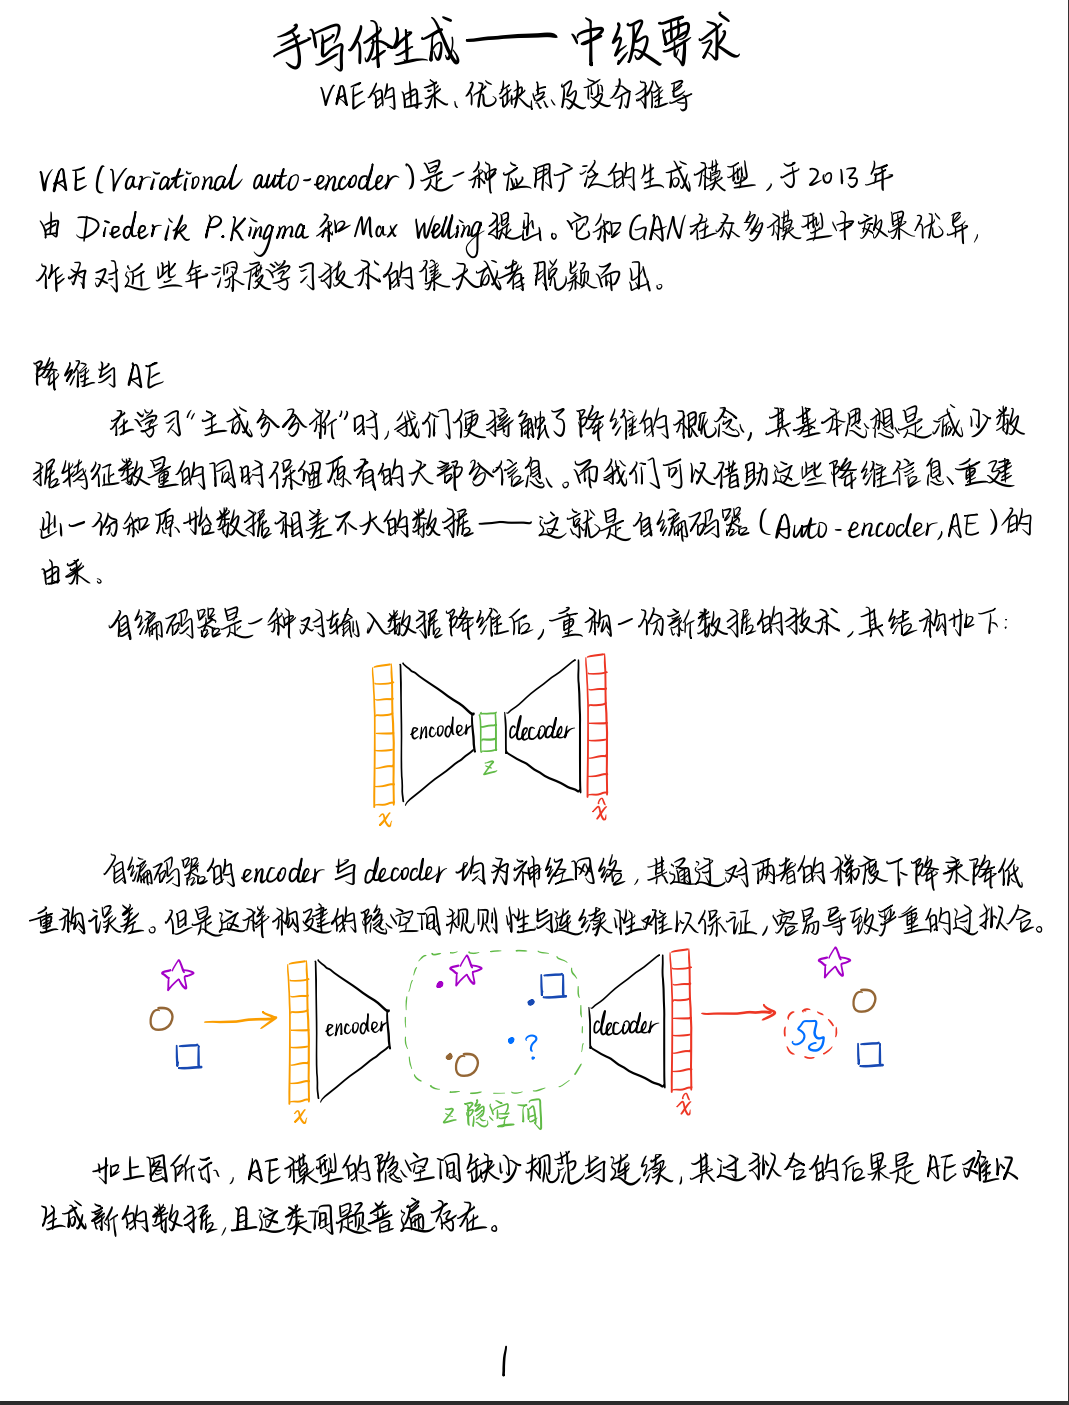 手写体生成——中级要求
VAE的由来、优缺点及变分推导
VAE(Variational auto-encoder)是一种应用广泛的生成模型,于2013年
由 Diederik P.Kingma 和Max Welling提出。它和GAN在众多模型中效果优异,
作为对近些年深度学习技术的集大成者脱颖而出。
降维与AE
在学习“主成分分析”时,我们便接触了降维的概念,其基本思想是减少数
据特征数量的同时保留原有的大部分信息。而我们可以借助这些降维信息重建
出一份和原始数据相差不大的数据——这就是自编码器(Auto-encoder,AE)的
由来。
自编码器是一种对输入数据降维后,重构一份新数据的技术,其结构如下:
encoder decoder
z
x x̂
自编码器的encoder与decoder均为神经网络,其通过对两者的梯度下降来降低
重构误差。但是这样构建的隐空间规则性与连续性难以保证,容易导致严重的过拟合。
encoder ? decoder
x z 隐空间 x̂
如上图所示,AE模型的隐空间缺少规范与连续,其过拟合的后果是AE难以
生成新的数据,且这类问题普遍存在。
1